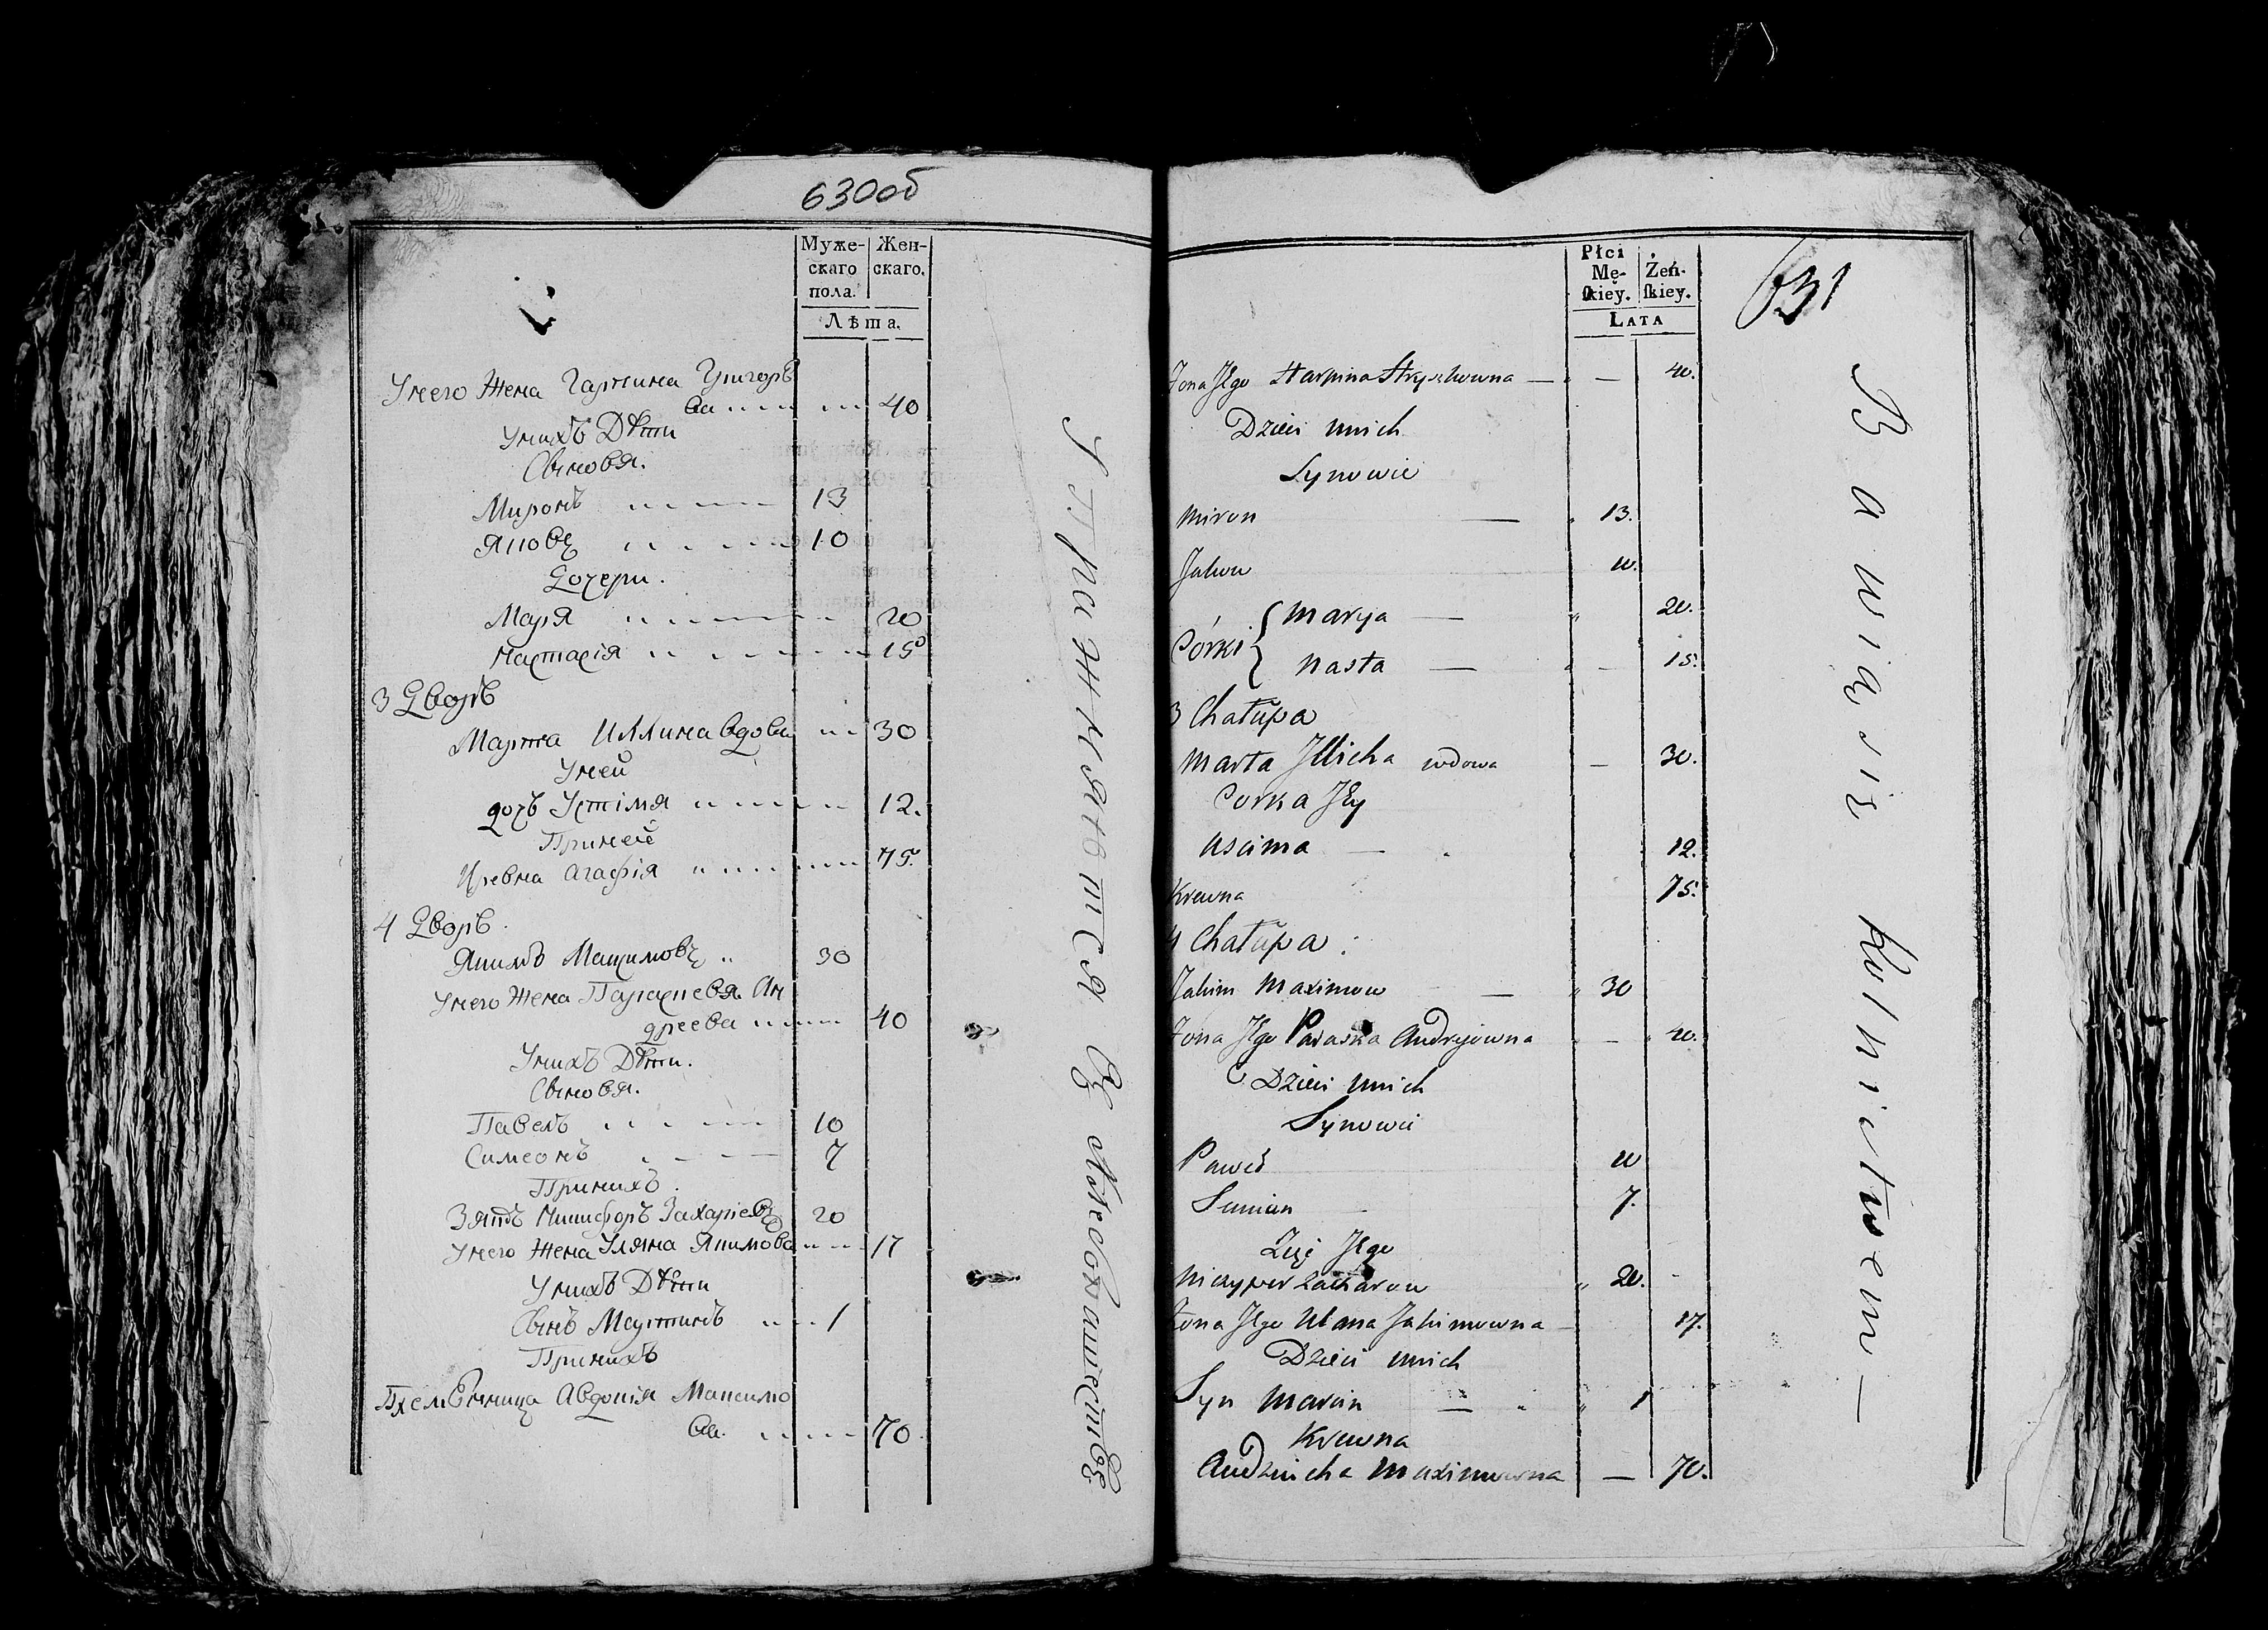 630об
Муже-
скаго
пола.
Жен-
скаго.
Лѣта.
У него Жена Гарпина Григорь
ва 40
У нихъ Дѣти
Сыновья.
Миронъ 13
Яковъ 10
Дочери.
Марья 20
Настасія 15
3 Дворъ
Марта Иллина вдова 30
У ней
дочь Устімя 12.
При ней
Кревна Агафія 75.
4 Дворъ.
Якимъ Макцимовъ 30
У него Жена Параскевья Ан
дреева 40
У нихъ Дѣти.
Сыновья.
Павелъ 10
Симеонъ 7
При нихъ.
Зять Никифоръ Захаріевъ 20
У него Жена Уляна Якимова 17
У нихъ Дѣти
Сынъ Мартинъ 1
При нихъ
Племѣнница Авдокія Максимо
ва. 70.
Упражняются въ хлебопашествѣ
Płci
Mę-
skiey.
Żeń-
skiey.
LATA
631
Żona Jego Harpina Hryshowna — — 40.
Dzieci unich
Synowie
Miron — 13.
Jakow 10.
Córki
Marya — 20.
Nasta — 15.
3 Chałupa
Marta Jllicha wdowa — 30.
Corka Jey
Uscima — 12.
Krewna 75.
4 Chałupa:
Jakim Maximow — 30
Żona Jego Paraska Andrejowna — 40.
Dzieci unich
Synowie
Paweł 10
Simian 7.
Zięć Jego
Niczyper Zacharow 20.
Żona Jego Ulana Jakimowna 17.
Dzieci unich
Syn Marcin — 1
Krewna
Audziucha Maximowna — 70.
Bawią sie Rolnictwem —